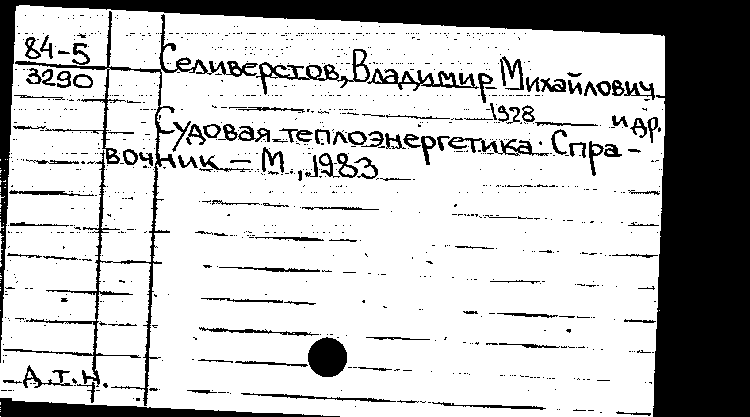 84-5
3290
Селиверстов, Владимир Михайлович
1928 и др.
Судовая теплоэнергетика: Спра-
вочник – М., 1983
д.т.н.